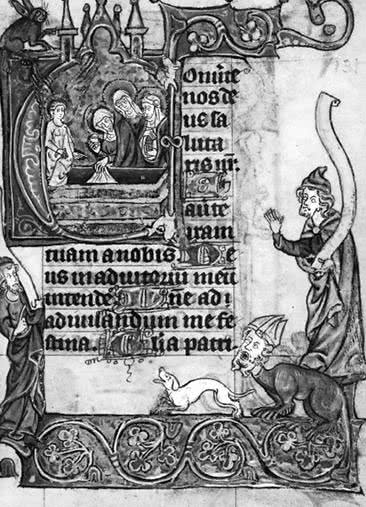 Conu̅te
nos de
us sa
luta
ris nr̅.
au̅te
iram
tuam a nobis. De
us in adiutoriu̅ meu̅
intende
adiuuandum me fe
stina. Glia patri